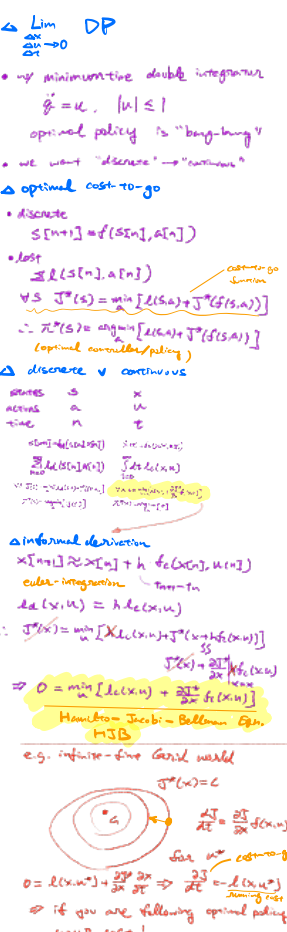 △ Lim DP
Δx
Δu →0
Δt
• w/ minimum time double integrator
q̈ = u, |u| ≤ 1
optimal policy is "bang-bang"
• we want "discrete" → "continuous"
△ optimal cost-to-go
• discrete
s[n+1] = f(s[n], a[n])
• cost
Σ l(s[n], a[n])
cost-to-go
function
∀s J*(s) = min_a [l(s,a) + J*(f(s,a))]
∴ π*(s) = argmin_a [l(s,a) + J*(f(s,a))]
(optimal controller/policy)
△ discrete v continuous
states s x
actions a u
time n t
△ informal derivation
x[n+1] ≈ x[n] + h f_c(x[n], u[n])
euler-integration
l_d(x,u) = h l_c(x,u)
∴ J*(x) = min_u [h l_c(x,u) + J*(x + h f_c(x,u))]
J*(x) + ∂J*/∂x h f_c(x,u)
⇒ 0 = min_u [l_c(x,u) + ∂J*/∂x f_c(x,u)]
Hamilton-Jacobi-Bellman Eqn.
HJB
e.g. infinite-time Grid world
J*(x) = C
G
dJ/dt = ∂J/∂x f(x,u)
for u*
cost-to-go
0 = l(x,u*) + ∂J*/∂x ∂x/∂t ⇒ ∂J/∂t = -l(x,u*)
running cost
⇒ if you are following optimal policy